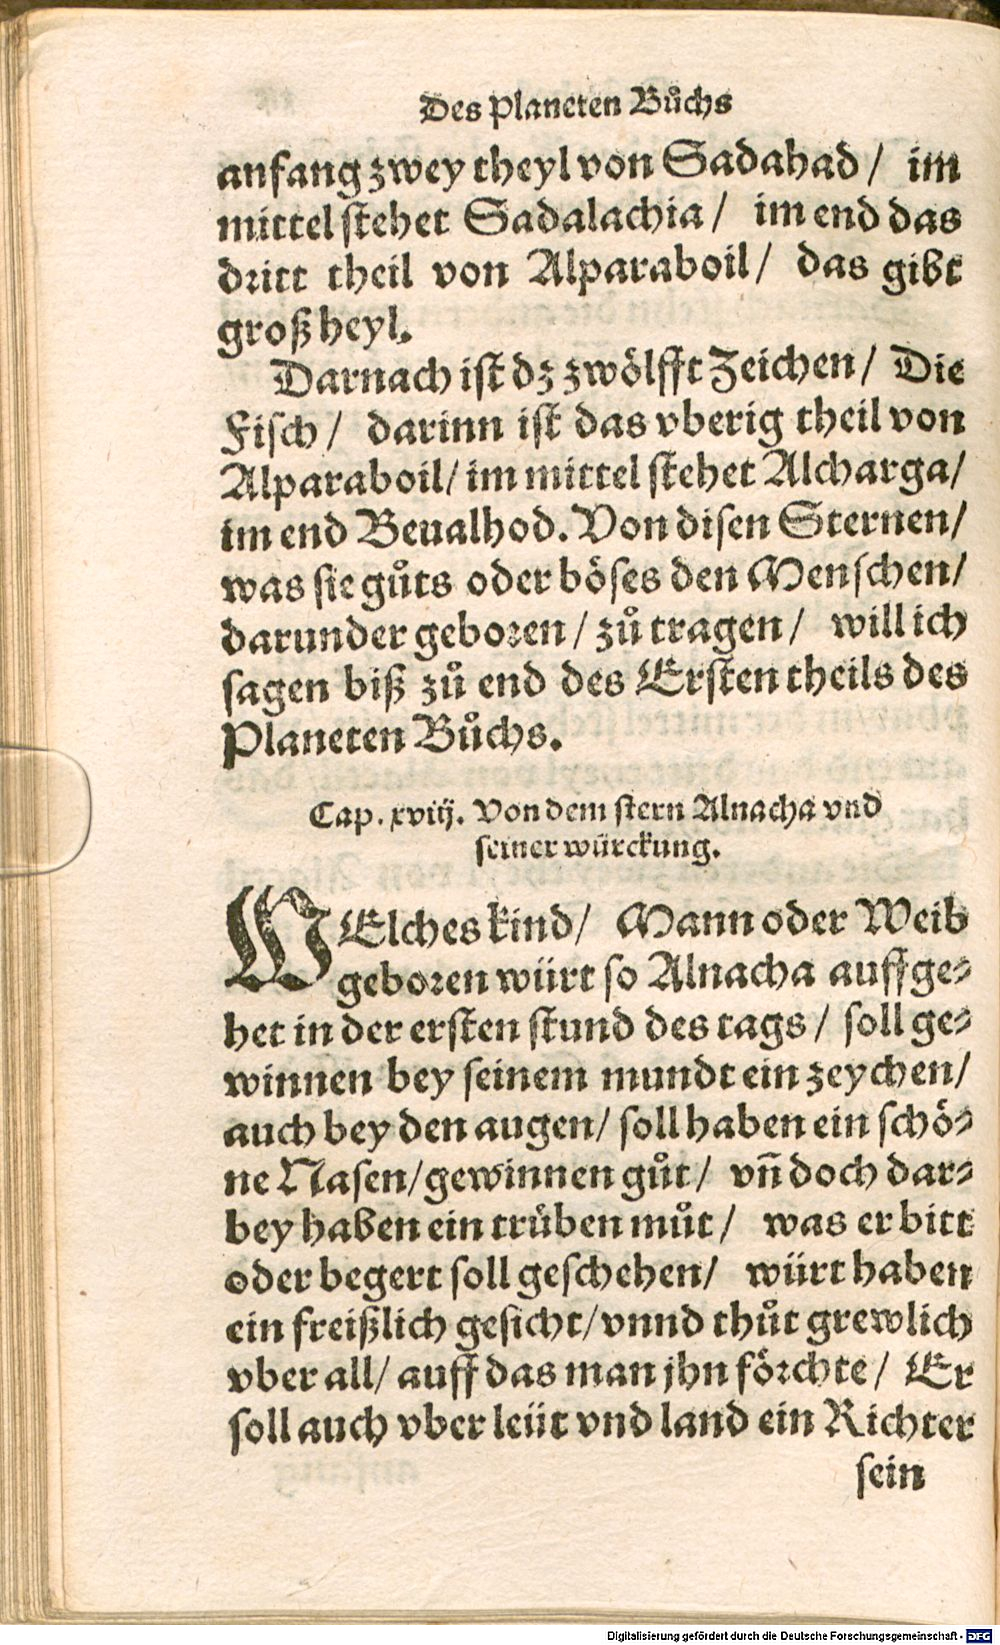 Des Planeten Bůchs
anfang zwey theyl von Sadahad / im
mittel stehet Sadalachia / im end das
dritt theil von Alparaboil / das gibt
groß heyl.
Darnach ist dz zwölfft Zeichen / Die
Fisch / darinn ist das vberig theil von
Alparaboil / im mittel stehet Alcharga /
im end Beualhod. Von disen Sternen /
was sie gůts oder böses den Menschen /
darunder geboren / zů tragen / will ich
sagen biß zů end des Ersten theils des
Planeten Bůchs.
Cap. xviij. Von dem stern Alnacha vnd
seiner würckung.
WElches kind / Mann oder Weib
geboren würt so Alnacha auffge⸗
het in der ersten stund des tags / soll ge⸗
winnen bey seinem mundt ein zeychen /
auch bey den augen / soll haben ein schö⸗
ne Nasen / gewinnen gůt / vñ doch dar⸗
bey haben ein trůben můt / was er bitt
oder begert soll geschehen / würt haben
ein freißlich gesicht / vnnd thůt grewlich
vber all / auff das man jhn förchte / Er
soll auch vber leüt vnd land ein Richter
sein
Digitalisierung gefördert durch die Deutsche Forschungsgemeinschaft - DFG